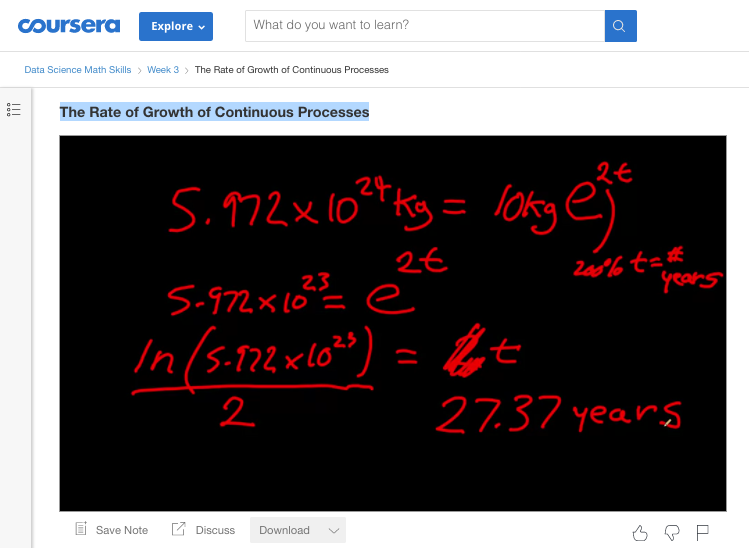 coursera
Explore
What do you want to learn?
Data Science Math Skills > Week 3 > The Rate of Growth of Continuous Processes
The Rate of Growth of Continuous Processes
5.972 x 10^24 kg = 10kg e^2t
200% t = # years
5.972 x 10^23 = e^2t
ln(5.972 x 10^23) / 2 = t
27.37 years
Save Note
Discuss
Download